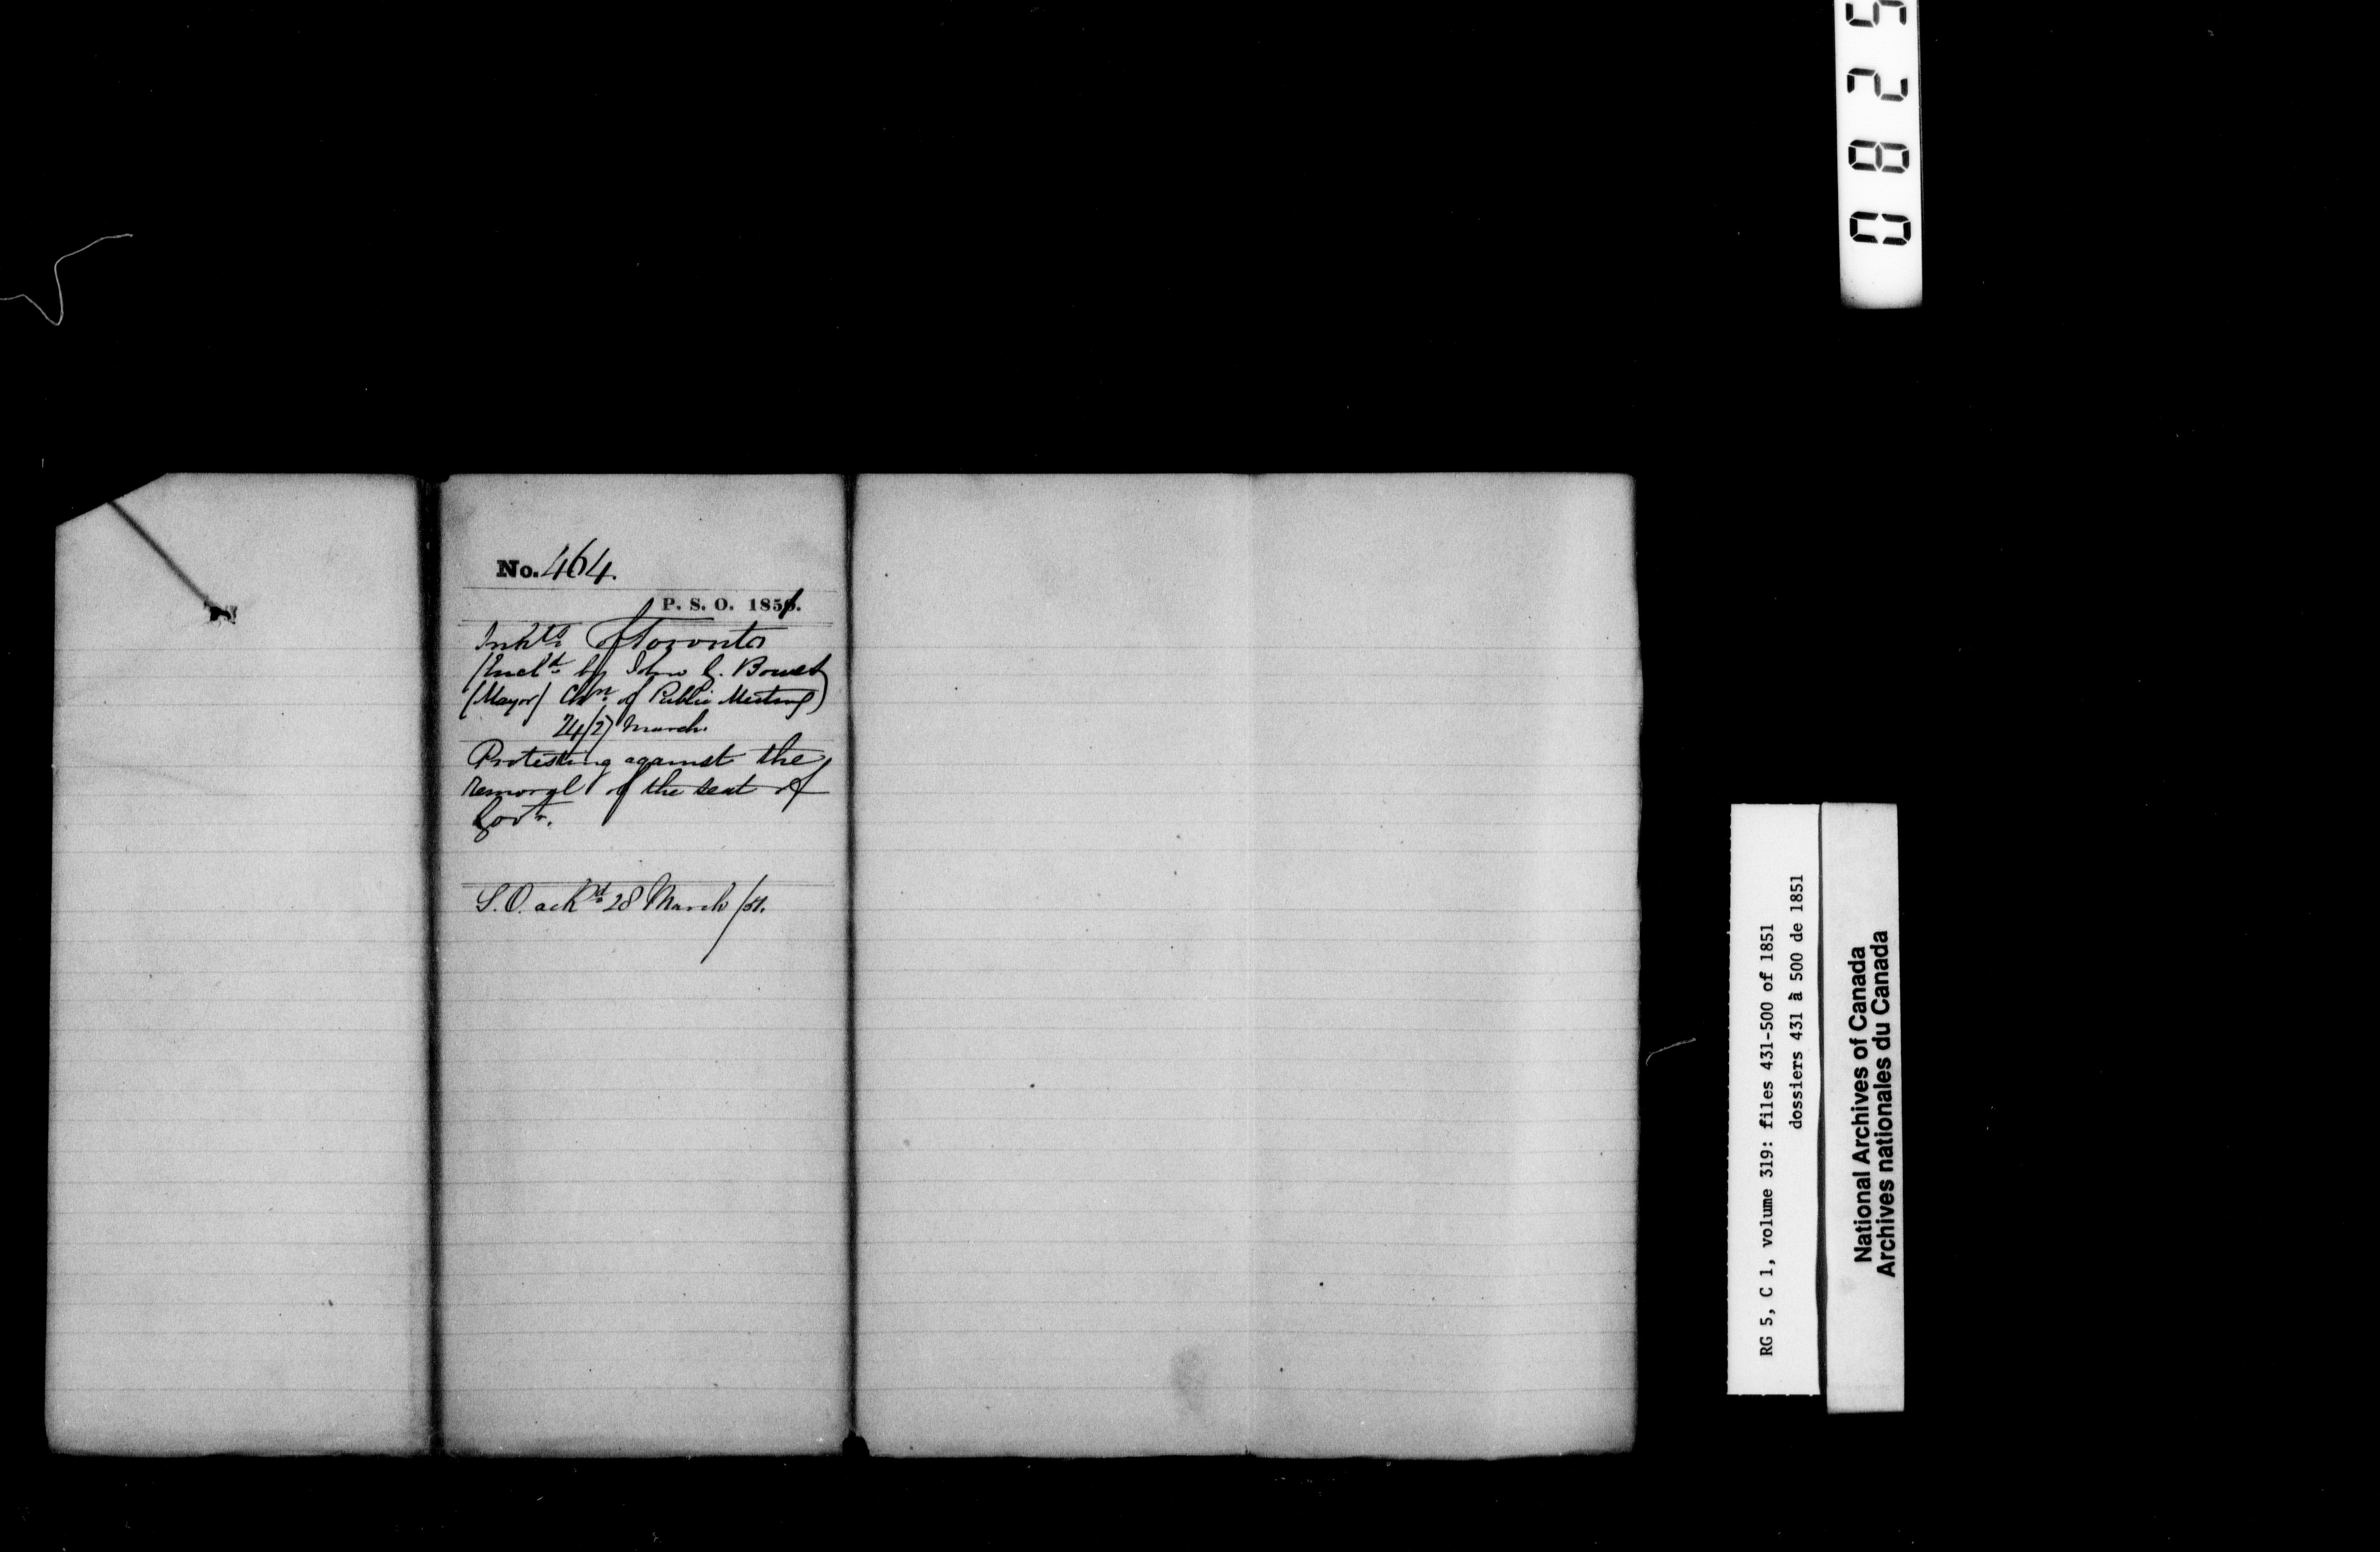 No. 464.
P. S. O. 1851.
Inhts. of Toronto
(Encld. by John G. Bowes
(Mayor) Chn. of Public Meeting)
24/27 March.
Protesting against the
removal of the seat of
Govt.
S.O. ackd. 28 March /51.
0825
RG 5, C 1, volume 319: files 431-500 of 1851
dossiers 431 à 500 de 1851
National Archives of Canada
Archives nationales du Canada